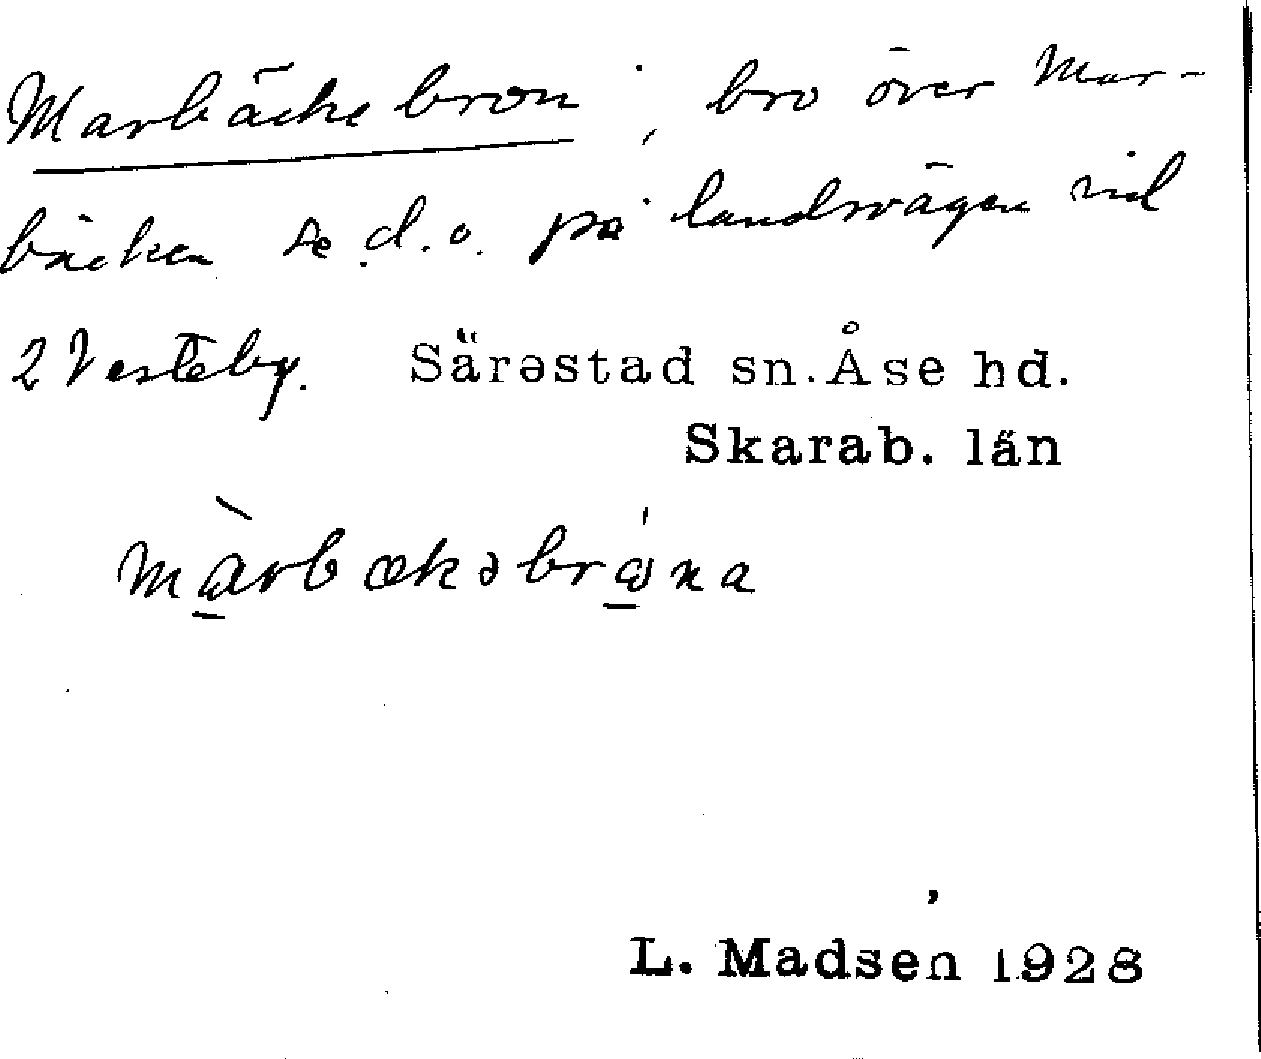 Marbäcke bron, bro över Mar-
bäcken se d.o. på landsvägen vid
2 Vesteby. Särestad sn. Åse hd.
Skarab. län
marbækəbrωna
L. Madsen 1928